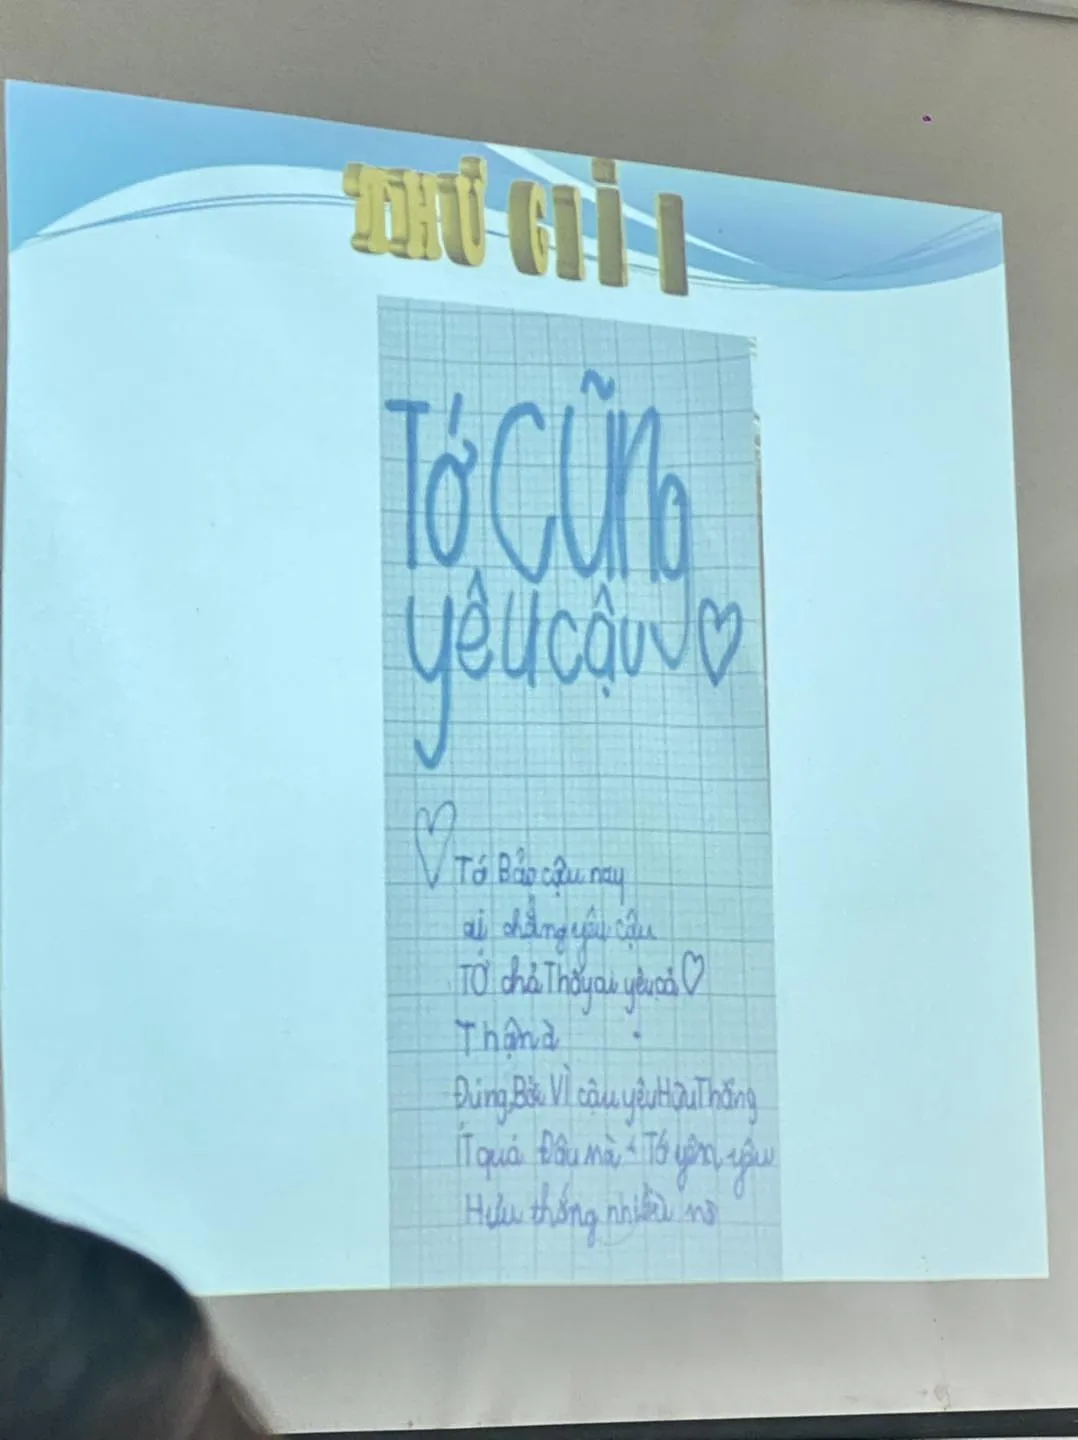 THƯ GIÌ I
Tớ Cũng
yêu cậu
Tớ Bảo cậu nay
ai chẳng yêu cậu
TỚ chả Thấy ai yêu cả
Thậnà
Đúng Bởi Vì cậu yêu Hữu Thắng
ÍT quá Đâu mà Tớ yêu
Hưu thắng nhiều mà